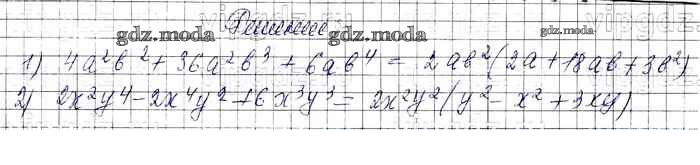 Решение
gdz.moda gdz.moda gdz.moda
1) 4a²b² + 36a²b³ + 6ab⁴ = 2ab²(2a + 18ab + 3b²)
2) 2x²y⁴ - 2x⁴y² + 6x³y³ = 2x²y²(y² - x² + 3xy)